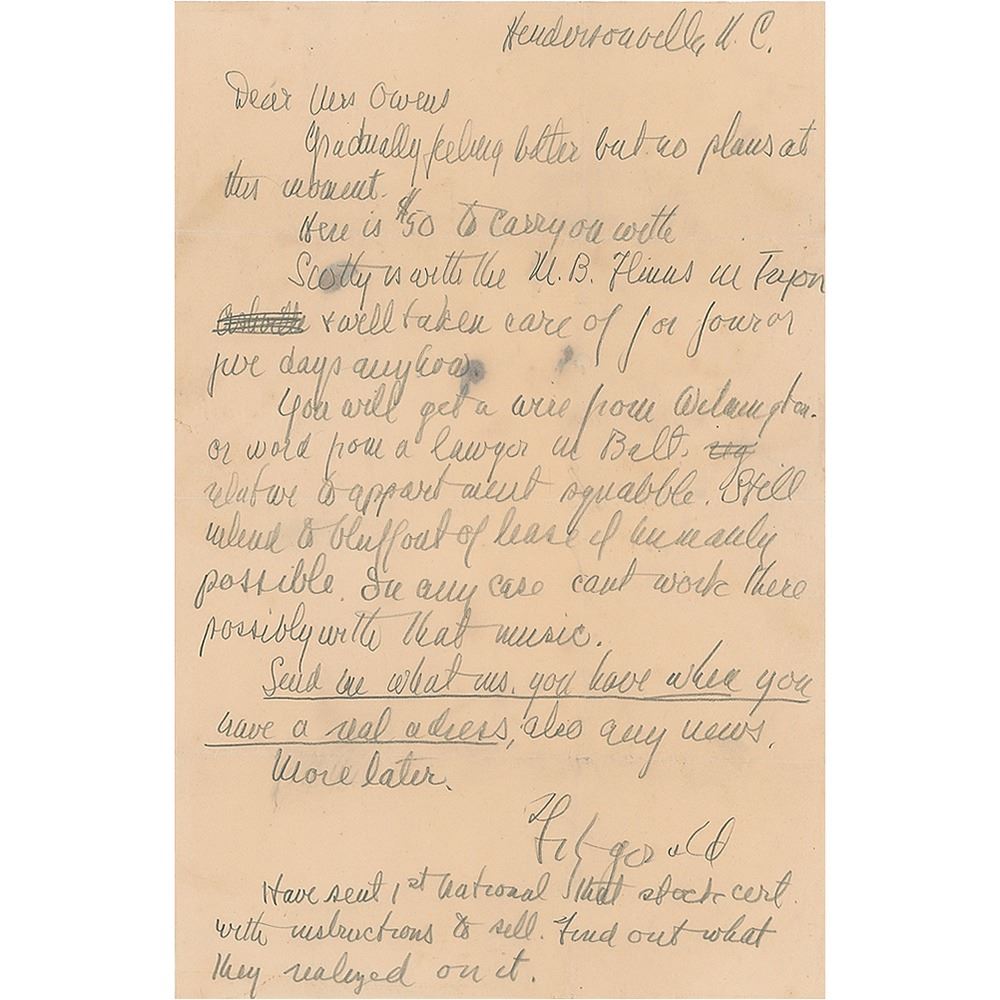 Hendersonville, N. C.
Dear Mrs Owens
Gradually feeling better but no plans at
this moment.
Here is $50 to carry on with
Scotty is with the M. B. Flinns in Tryon
+ well taken care of for four or
five days anyhow.
You will get a wire from Wilmington.
or word from a lawyer in Balt.
relative to appartment squabble. Still
intend to bluff out of lease if humanly
possible. In any case cant work there
possibly with that music.
Send me what ms. you have when you
have a real adress, also any news.
More later.
Fitzgerald
Have sent 1st National that stock cert.
with instructions to sell. Find out what
they realized on it.